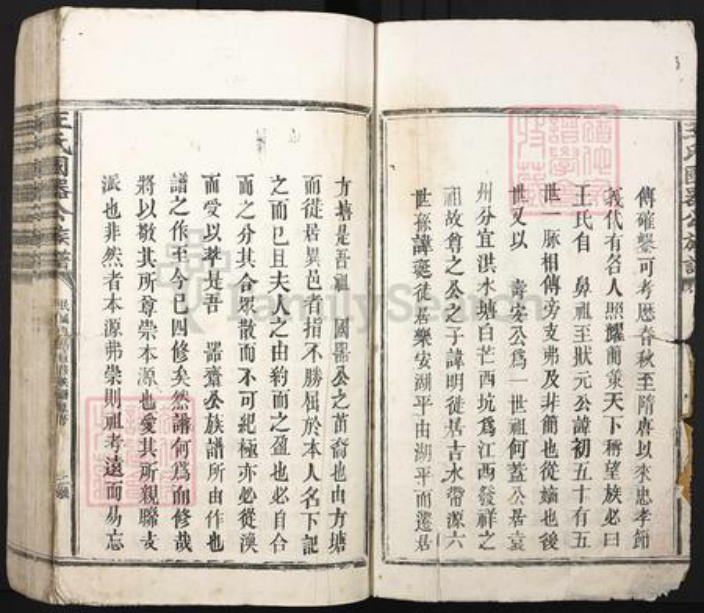 傳確鑿可考歷春秋至隋唐以來忠孝節
義代有名人照耀簡策天下稱望族必曰
王氏自 鼻祖至狀元公諱初五十有五
世一脈相傳旁支弗及非簡也從嫡也後
世又以 壽安公爲一世祖何蓋公居袁
州分宜洪水塘白芒西坑爲江西發祥之
祖故尊之公之子諱明徙居吉水帶源六
世孫諱 徙居樂安湖平由湖平而遷居
方塘是吾祖 國器公之苗裔也由方塘
而徙居異邑者指不勝屈於本人名下記
之而已且夫人之由約而之盈也必自合
而之分其合眾散而不可紀極亦必從渙
而受以萃是吾 器齋公族譜所由作也
譜之作至今已四修矣然譜何爲而修哉
將以敬其所尊崇本源也愛其所親聯支
派也非然者本源弗崇則祖考遠而易忘
王氏國器公族譜
王氏國器公族譜
FamilySearch